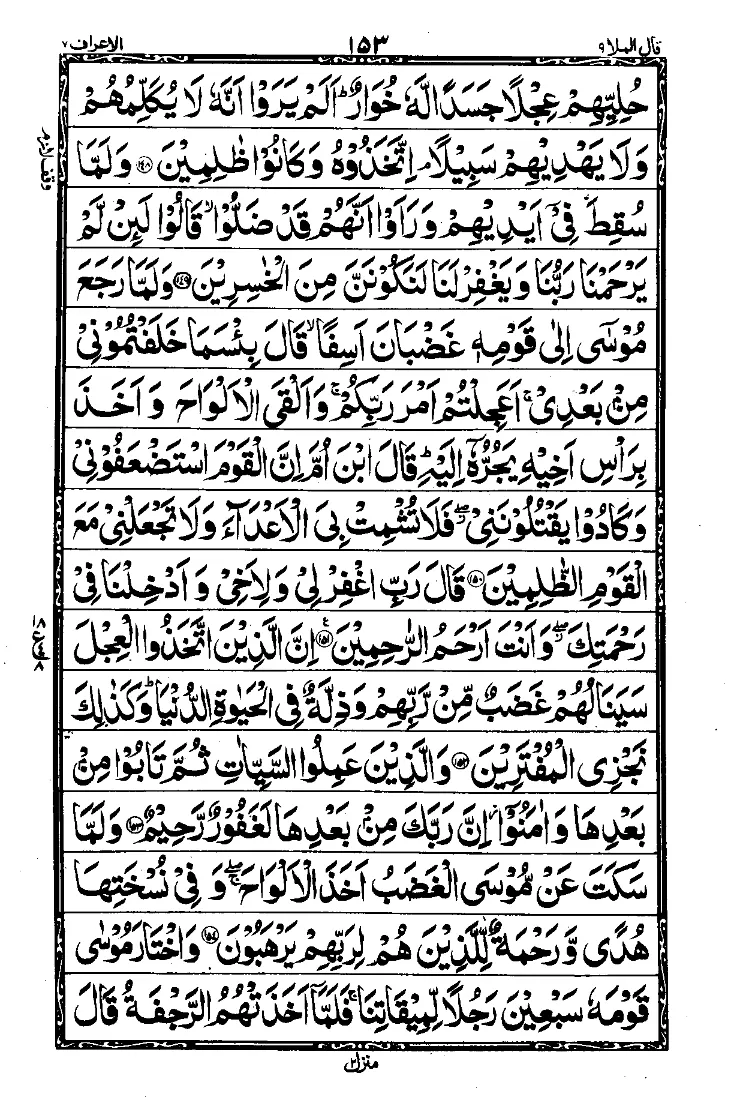 قال الملا ۹
۱۵۳
الاعراف ۷
حُلِيِّهِمْ عِجْلًا جَسَدًا لَّهٗ خُوَارٌ ؕ اَلَمْ يَرَوْا اَنَّهٗ لَا يُكَلِّمُهُمْ
وَلَا يَهْدِيْهِمْ سَبِيْلًا ۘ اِتَّخَذُوْهُ وَكَانُوْا ظٰلِمِيْنَ ﴿۱۴۸﴾ وَلَمَّا
سُقِطَ فِيْۤ اَيْدِيْهِمْ وَرَاَوْا اَنَّهُمْ قَدْ ضَلُّوْا ۙ قَالُوْا لَئِنْ لَّمْ
يَرْحَمْنَا رَبُّنَا وَيَغْفِرْ لَنَا لَنَكُوْنَنَّ مِنَ الْخٰسِرِيْنَ ﴿۱۴۹﴾ وَلَمَّا رَجَعَ
مُوْسٰۤى اِلٰى قَوْمِهٖ غَضْبَانَ اَسِفًا ۙ قَالَ بِئْسَمَا خَلَفْتُمُوْنِيْ
مِنْۢ بَعْدِيْ ۚ اَعَجِلْتُمْ اَمْرَ رَبِّكُمْ ۚ وَاَلْقَى الْاَلْوَاحَ وَاَخَذَ
بِرَاْسِ اَخِيْهِ يَجُرُّهٗۤ اِلَيْهِ ؕ قَالَ ابْنَ اُمَّ اِنَّ الْقَوْمَ اسْتَضْعَفُوْنِيْ
وَكَادُوْا يَقْتُلُوْنَنِيْ ۖ فَلَا تُشْمِتْ بِيَ الْاَعْدَآءَ وَلَا تَجْعَلْنِيْ مَعَ
الْقَوْمِ الظّٰلِمِيْنَ ﴿۱۵۰﴾ قَالَ رَبِّ اغْفِرْ لِيْ وَلِاَخِيْ وَاَدْخِلْنَا فِيْ
رَحْمَتِكَ ۖ وَاَنْتَ اَرْحَمُ الرّٰحِمِيْنَ ﴿۱۵۱﴾ اِنَّ الَّذِيْنَ اتَّخَذُوا الْعِجْلَ
سَيَنَالُهُمْ غَضَبٌ مِّنْ رَّبِّهِمْ وَذِلَّةٌ فِي الْحَيٰوةِ الدُّنْيَا ؕ وَكَذٰلِكَ
نَجْزِي الْمُفْتَرِيْنَ ﴿۱۵۲﴾ وَالَّذِيْنَ عَمِلُوا السَّيِّاٰتِ ثُمَّ تَابُوْا مِنْۢ
بَعْدِهَا وَاٰمَنُوْۤا ۡ اِنَّ رَبَّكَ مِنْۢ بَعْدِهَا لَغَفُوْرٌ رَّحِيْمٌ ﴿۱۵۳﴾ وَلَمَّا
سَكَتَ عَنْ مُّوْسَى الْغَضَبُ اَخَذَ الْاَلْوَاحَ ۖ وَفِيْ نُسْخَتِهَا
هُدًى وَّرَحْمَةٌ لِّلَّذِيْنَ هُمْ لِرَبِّهِمْ يَرْهَبُوْنَ ﴿۱۵۴﴾ وَاخْتَارَ مُوْسٰى
قَوْمَهٗ سَبْعِيْنَ رَجُلًا لِّمِيْقَاتِنَا ۚ فَلَمَّاۤ اَخَذَتْهُمُ الرَّجْفَةُ قَالَ
وقف لازم
منزل ۲